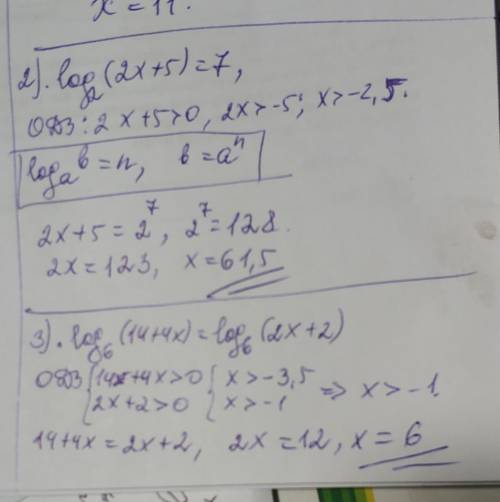 x = 11.
2). log₂(2x+5)=7,
ОДЗ: 2x+5>0, 2x>-5; x>-2,5.
logₐb = n, b=aⁿ
2x+5=2⁷, 2⁷=128.
2x=123, x=61,5
3). log₆(14+4x)=log₆(2x+2)
ОДЗ {14x+4x>0 {x>-3,5
{2x+2>0 {x>-1 => x>-1.
14+4x=2x+2, 2x=12, x=6